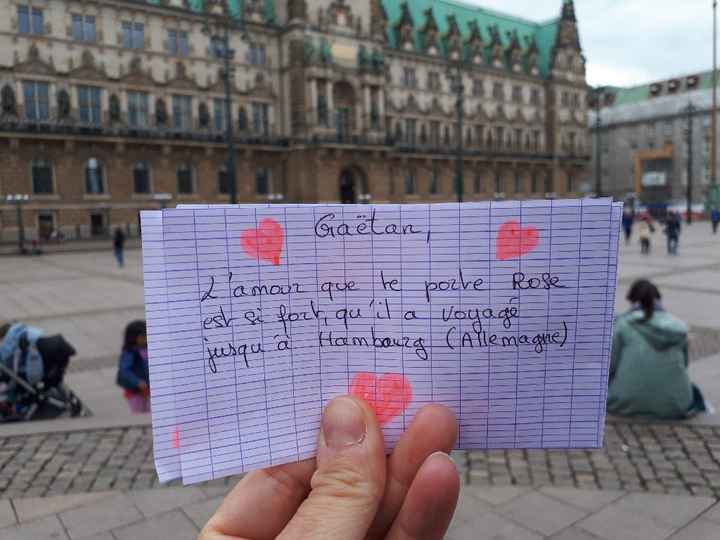 Gaëtan,
L'amour que te porte Rose
est si fort, qu'il a voyagé
jusqu'à Hambourg (Allemagne)